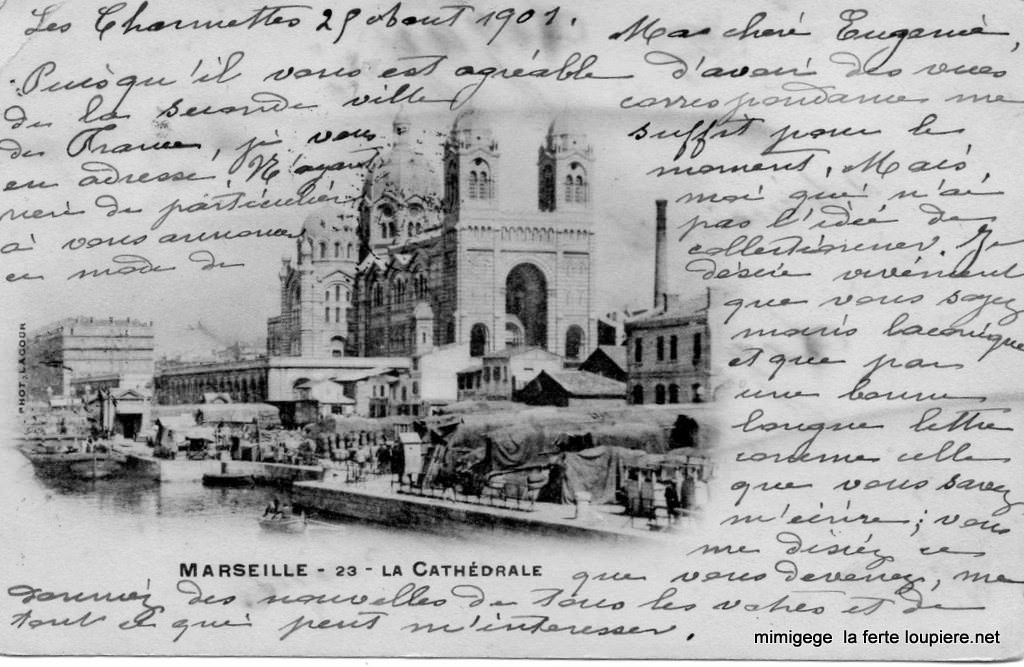 Les Charmettes 25 Aout 1901.
Ma chère Eugénie,
Puisqu'il vous est agréable d'avoir des vues
de la seconde ville
de France, je vous
en adresse. N'ayant
rien de particulier
à vous annoncer
ce mode de
correspondance me
suffit pour le
moment. Mais,
moi qui n'ai
pas l'idée de
collectionner. Je
désire vivement
que vous soyez
moins laconique
et que par
une bonne
longue lettre
comme celles
que vous savez
m'écrire; vous
me disiez ce
que vous devenez, me
donniez des nouvelles de tous les vôtres et de
tout ce qui peut m'intéresser.
PHOT. LACOUR
MARSEILLE - 23 - LA CATHÉDRALE
mimigege la ferte loupiere.net